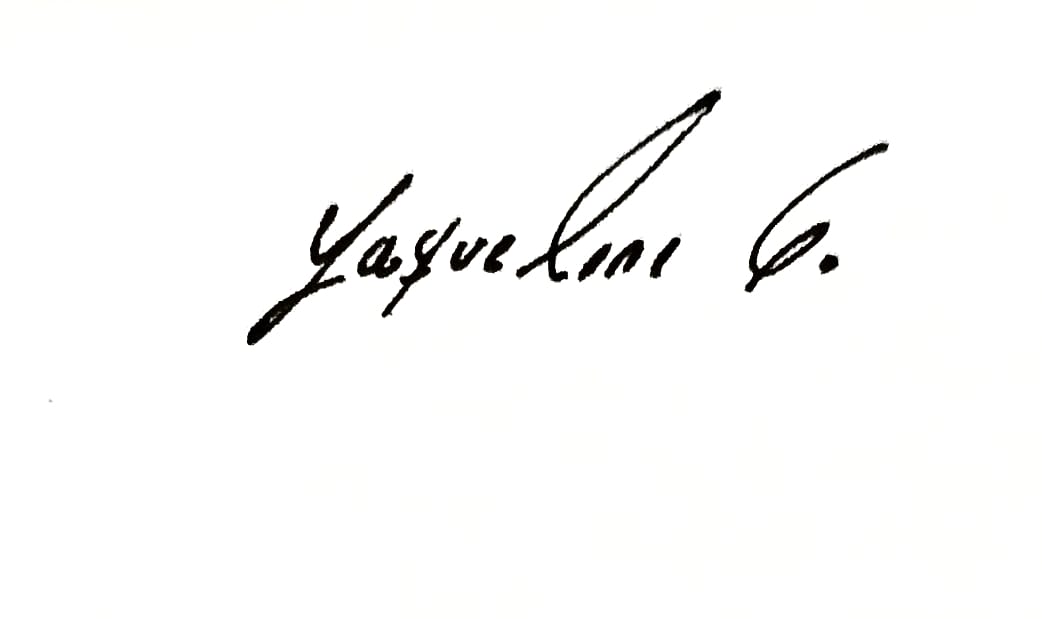 Yaqueline G.